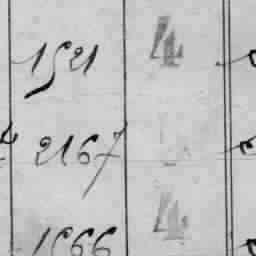 1521 4
2167
1566 4